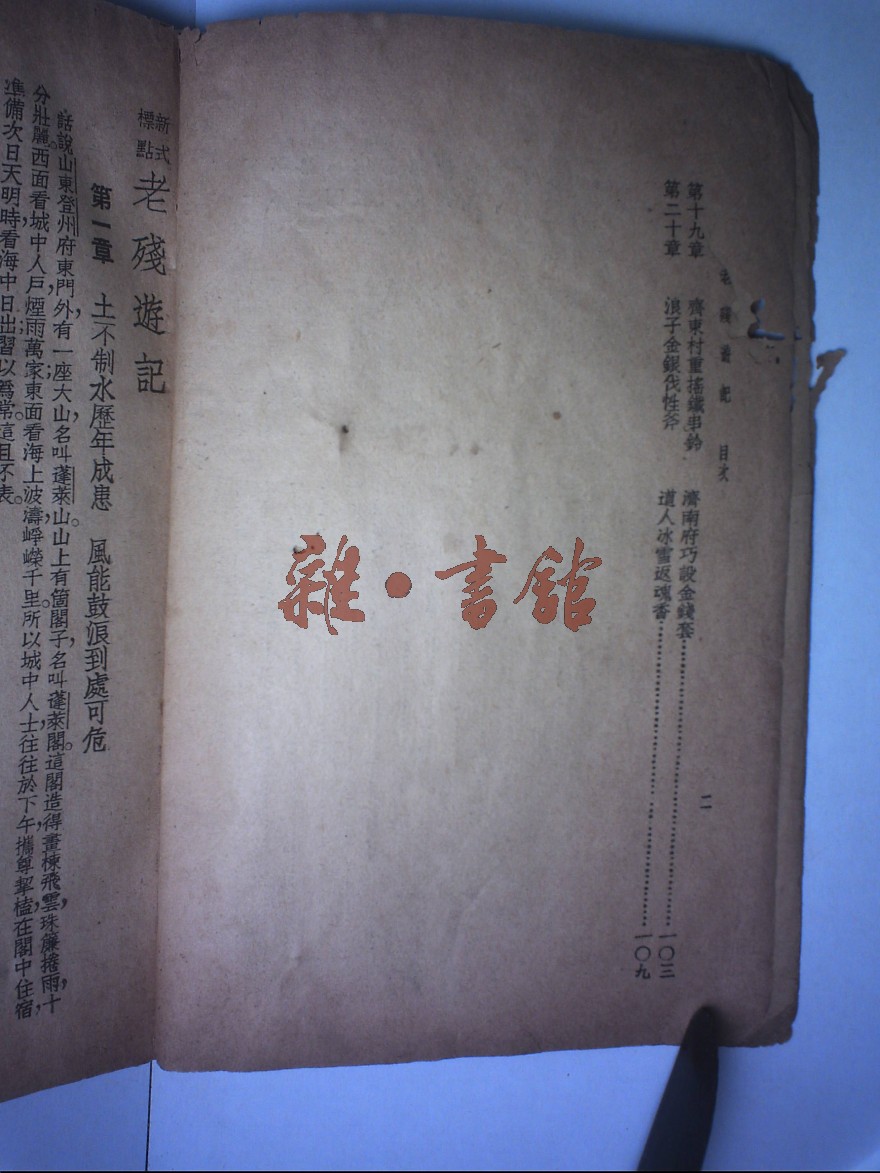 老殘遊記 目次
二
第十九章 齊東村重搖鐵串鈴 濟南府巧設金錢套 一〇三
第二十章 浪子金銀伐性斧 道人冰雪返魂香 一〇九
雜·書館
新式標點 老殘遊記
第一章 土不制水歷年成患 風能鼓浪到處可危
話說山東登州府東門外,有一座大山,名叫蓬萊山。山上有箇閣子,名叫蓬萊閣。這閣造得畫棟飛雲,珠簾捲雨,十
分壯麗。西面看城中人戶,煙雨萬家;東面看海上波濤,崢嶸千里。所以城中人士往往於下午攜尊挈榼,在閣中住宿,
準備次日天明時,看海中日出。習以爲常。這且不表。